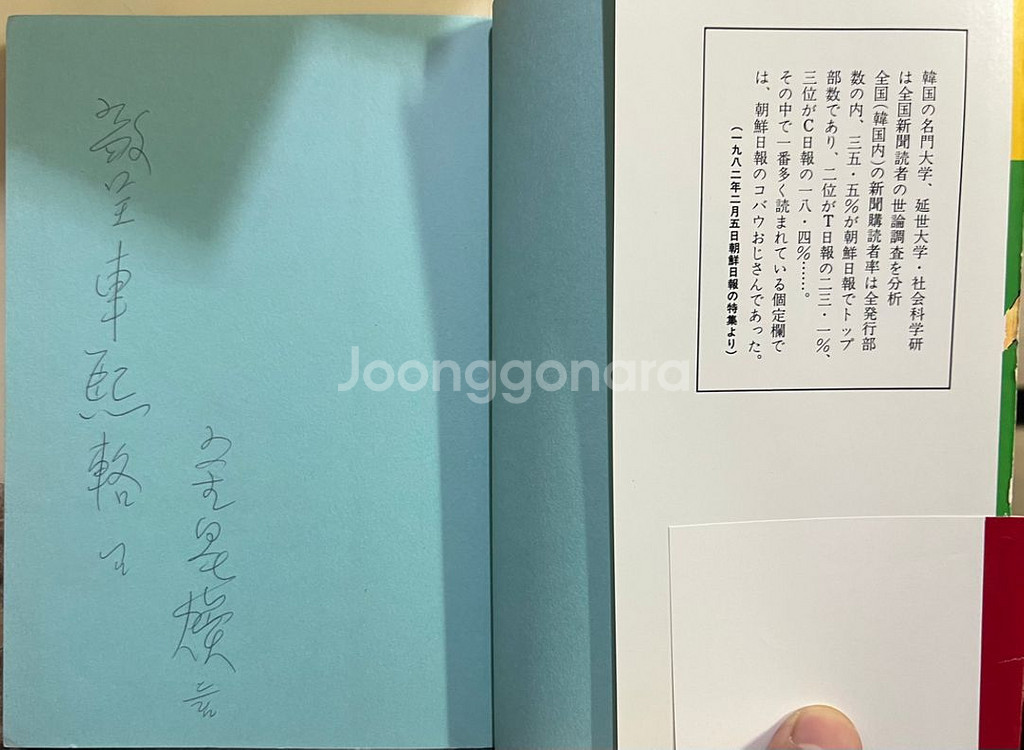 敬呈 車熙輅
金星煥
韓国の名門大学、延世大学・社会科学研
は全国新聞読者の世論調査を分析
全国(韓国内)の新聞購読者率は全発行部
数の内、三五・五%が朝鮮日報でトップ
部数であり、二位がT日報の二三・一%、
三位がC日報の一八・四%……。
その中で一番多く読まれている個定欄で
は、朝鮮日報のコバウおじさんであった。
(一九八二年二月五日朝鮮日報の特集より)
Joonggonara